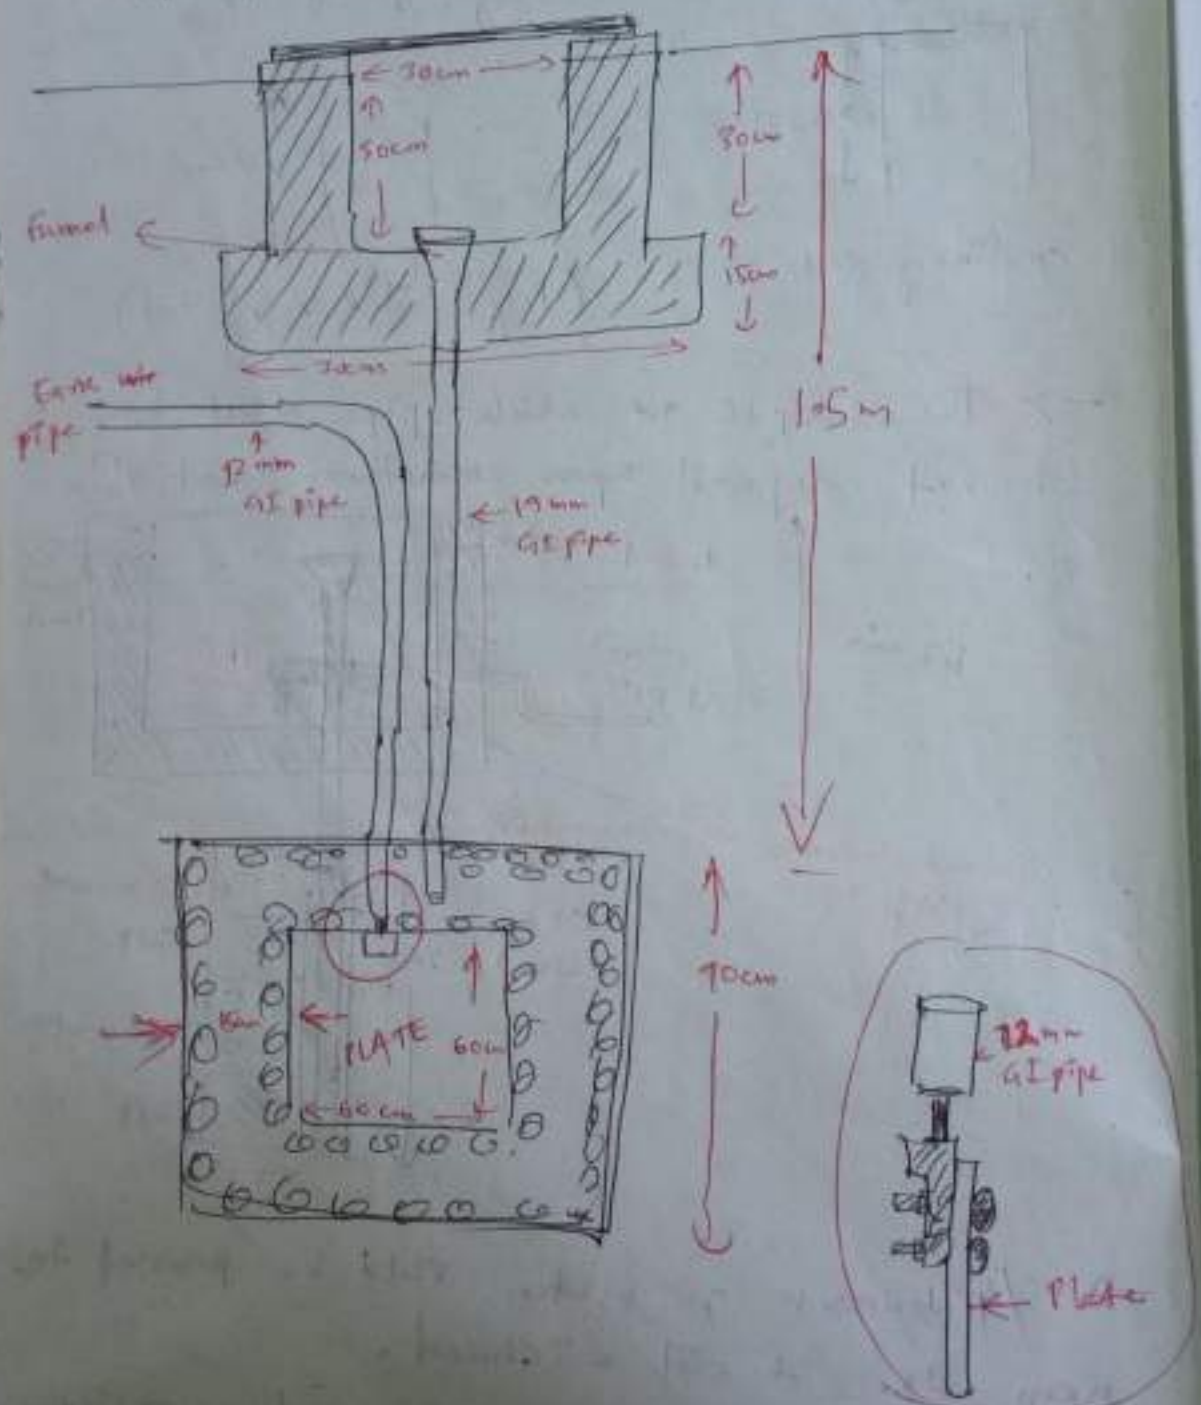 30cm
30cm
30cm
Funnel
15cm
70cms
Earse wire
pipe
12 mm
GI pipe
1.5 m
19mm
GI pipe
90cm
15cm
PLATE
60cm
60 cm
12mm
GI pipe
Plate